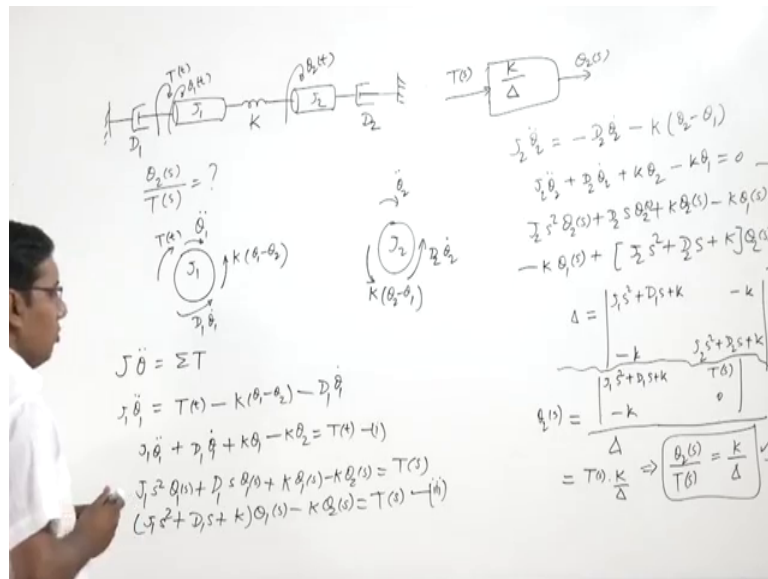 T(t) θ₁(t) θ₂(t)
J₁ J₂
D₁ K D₂
T(s) K/Δ θ₂(s)
θ₂(s)/T(s) = ?
T(t) θ̈₁
J₁ K(θ₁-θ₂)
D₁θ̇₁
θ̈₂
J₂ D₂θ̇₂
K(θ₂-θ₁)
Jθ̈ = ΣT
J₁θ̈₁ = T(t) - K(θ₁-θ₂) - D₁θ̇₁
J₁θ̈₁ + D₁θ̇₁ + Kθ₁ - Kθ₂ = T(t) -(i)
J₁s²θ₁(s) + D₁sθ₁(s) + Kθ₁(s) - Kθ₂(s) = T(s)
(J₁s² + D₁s + K)θ₁(s) - Kθ₂(s) = T(s) -(ii)
J₂θ̈₂ = -D₂θ̇₂ - K(θ₂-θ₁)
J₂θ̈₂ + D₂θ̇₂ + Kθ₂ - Kθ₁ = 0 -
J₂s²θ₂(s) + D₂sθ₂(s) + Kθ₂(s) - Kθ₁(s)
-Kθ₁(s) + [J₂s² + D₂s + K]θ₂(s)
Δ = | J₁s² + D₁s + K -K |
| -K J₂s² + D₂s + K |
θ₂(s) = | J₁s² + D₁s + K T(s) |
| -K 0 |
Δ
= T(s)·K/Δ ⇒ θ₂(s)/T(s) = K/Δ ✓